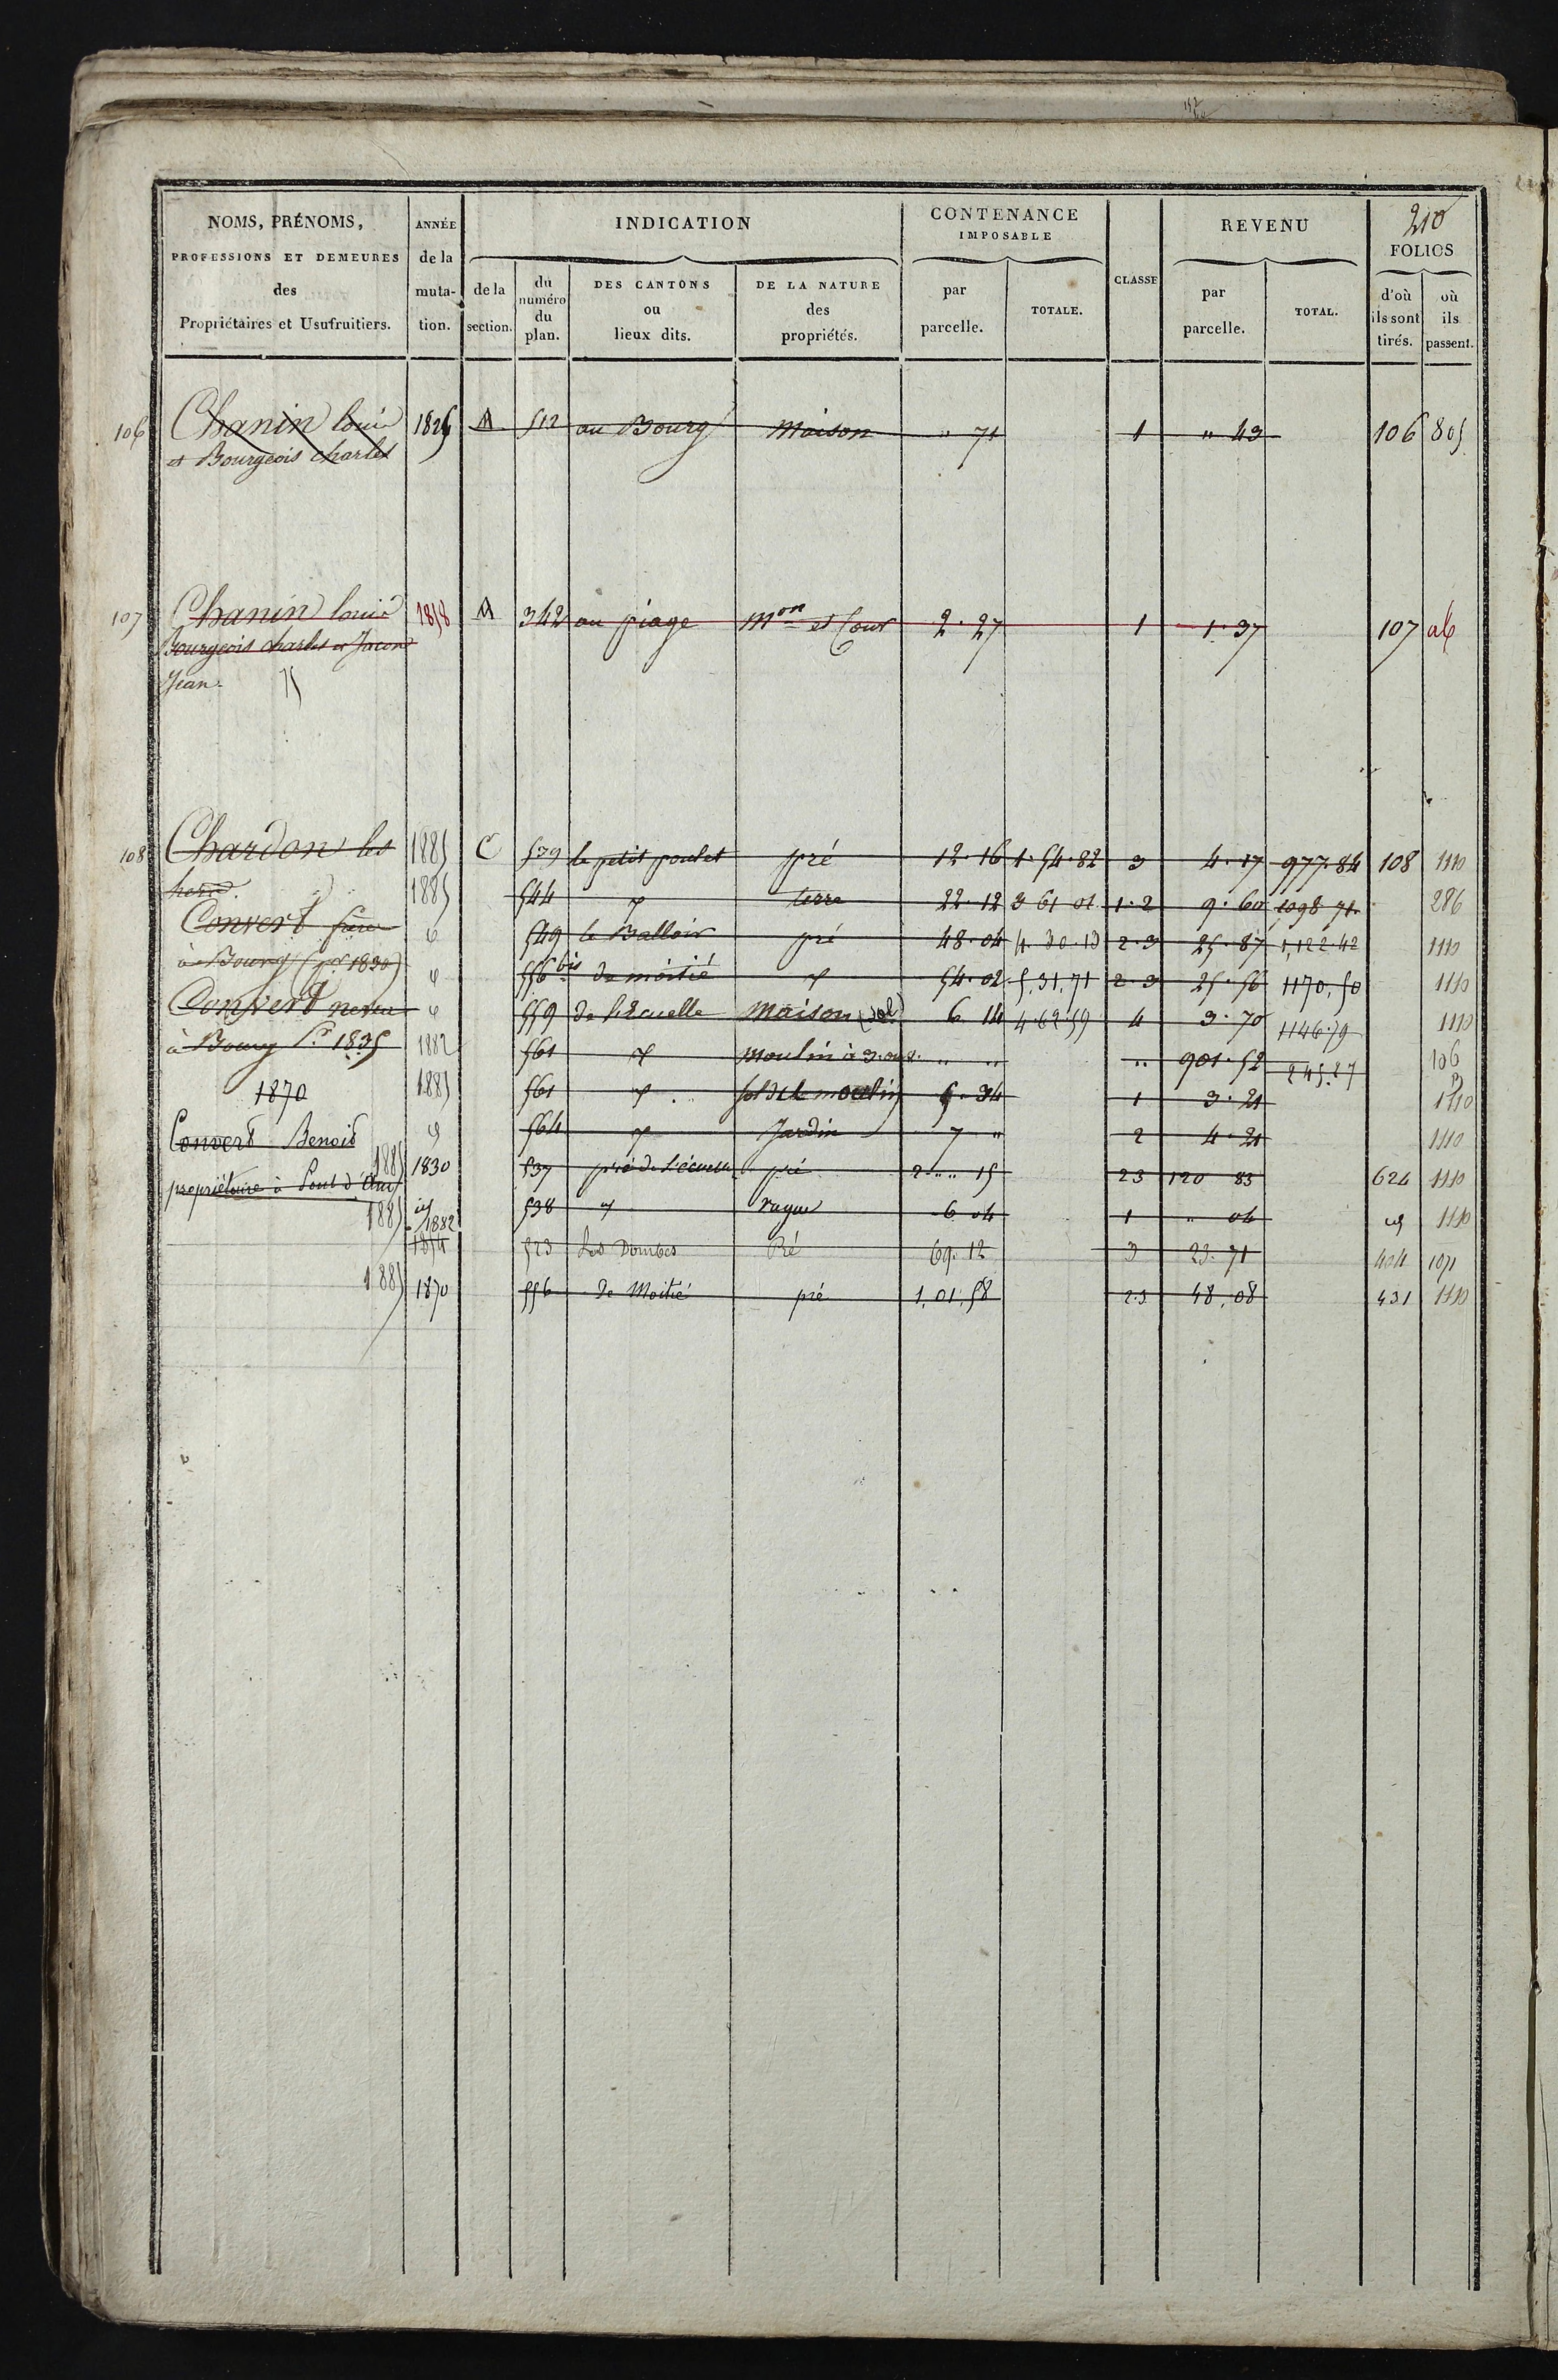 210
NOMS, PRÉNOMS,
PROFESSIONS ET DEMEURES
des
Propriétaires et Usufruitiers.
ANNÉE
de la
muta-
tion.
INDICATION
de la
section.
du
numéro
du
plan.
DES CANTONS
ou
lieux dits.
DE LA NATURE
des
propriétés.
CONTENANCE
IMPOSABLE
par
parcelle.
TOTALE.
CLASSE
REVENU
par
parcelle.
TOTAL.
FOLIOS
d'où
ils sont
tirés.
où
ils
passent.
106 Chanin louis 1826 A 512 au Bourg Maison " 71 1 " 43 106 805
et Bourgeois charles
107 Chanin louis 1858 A 342 au piage Mon et Cour 2. 27 1 1. 37 107
Bourgeois charles et Jacon
Jean
108 Chardon les 1885 C 539 le petit poulet pré 12. 16 1. 54. 82 3 4. 17 977. 84 108 1110
1885 544 terre 22. 12 3 61 01 1. 2 9. 60 1098 71 286
Convert frère 549 le Balloir pré 48. 04 4. 30. 13 2. 3 25. 87 1,122. 42 1110
à Bourg (pr 1830) 556 bis de moitié 54. 02 5. 31. 71 2. 3 25. 56 1170. 50 1110
Convert neveu 559 de l'Ecuelle Maison (sol) 6 14 4. 62. 59 4 3. 70 1146. 79 1110
à Bourg Pr 1835 1882 561 Moulin à 3. " " " 901. 52 245. 27 106
1870 1885 561 sol de le moulin 6. 34 1 3. 21 1110
Convert Benoit 564 Jardin 7 " 2 4. 21 1110
propriétaire à Pont d'Ain 1885 1830 537 pré de l'écuelle pré 2. " 15 2 3 120 83 624 1110
1885 1882 538 vague 6 04 1 " 06 1110
1854 523 Les Dombes Pré 69. 12 3 23. 71 404 1071
1885 1870 556 de Moitié pré 1. 01. 58 2. 3 48. 08 431 1110